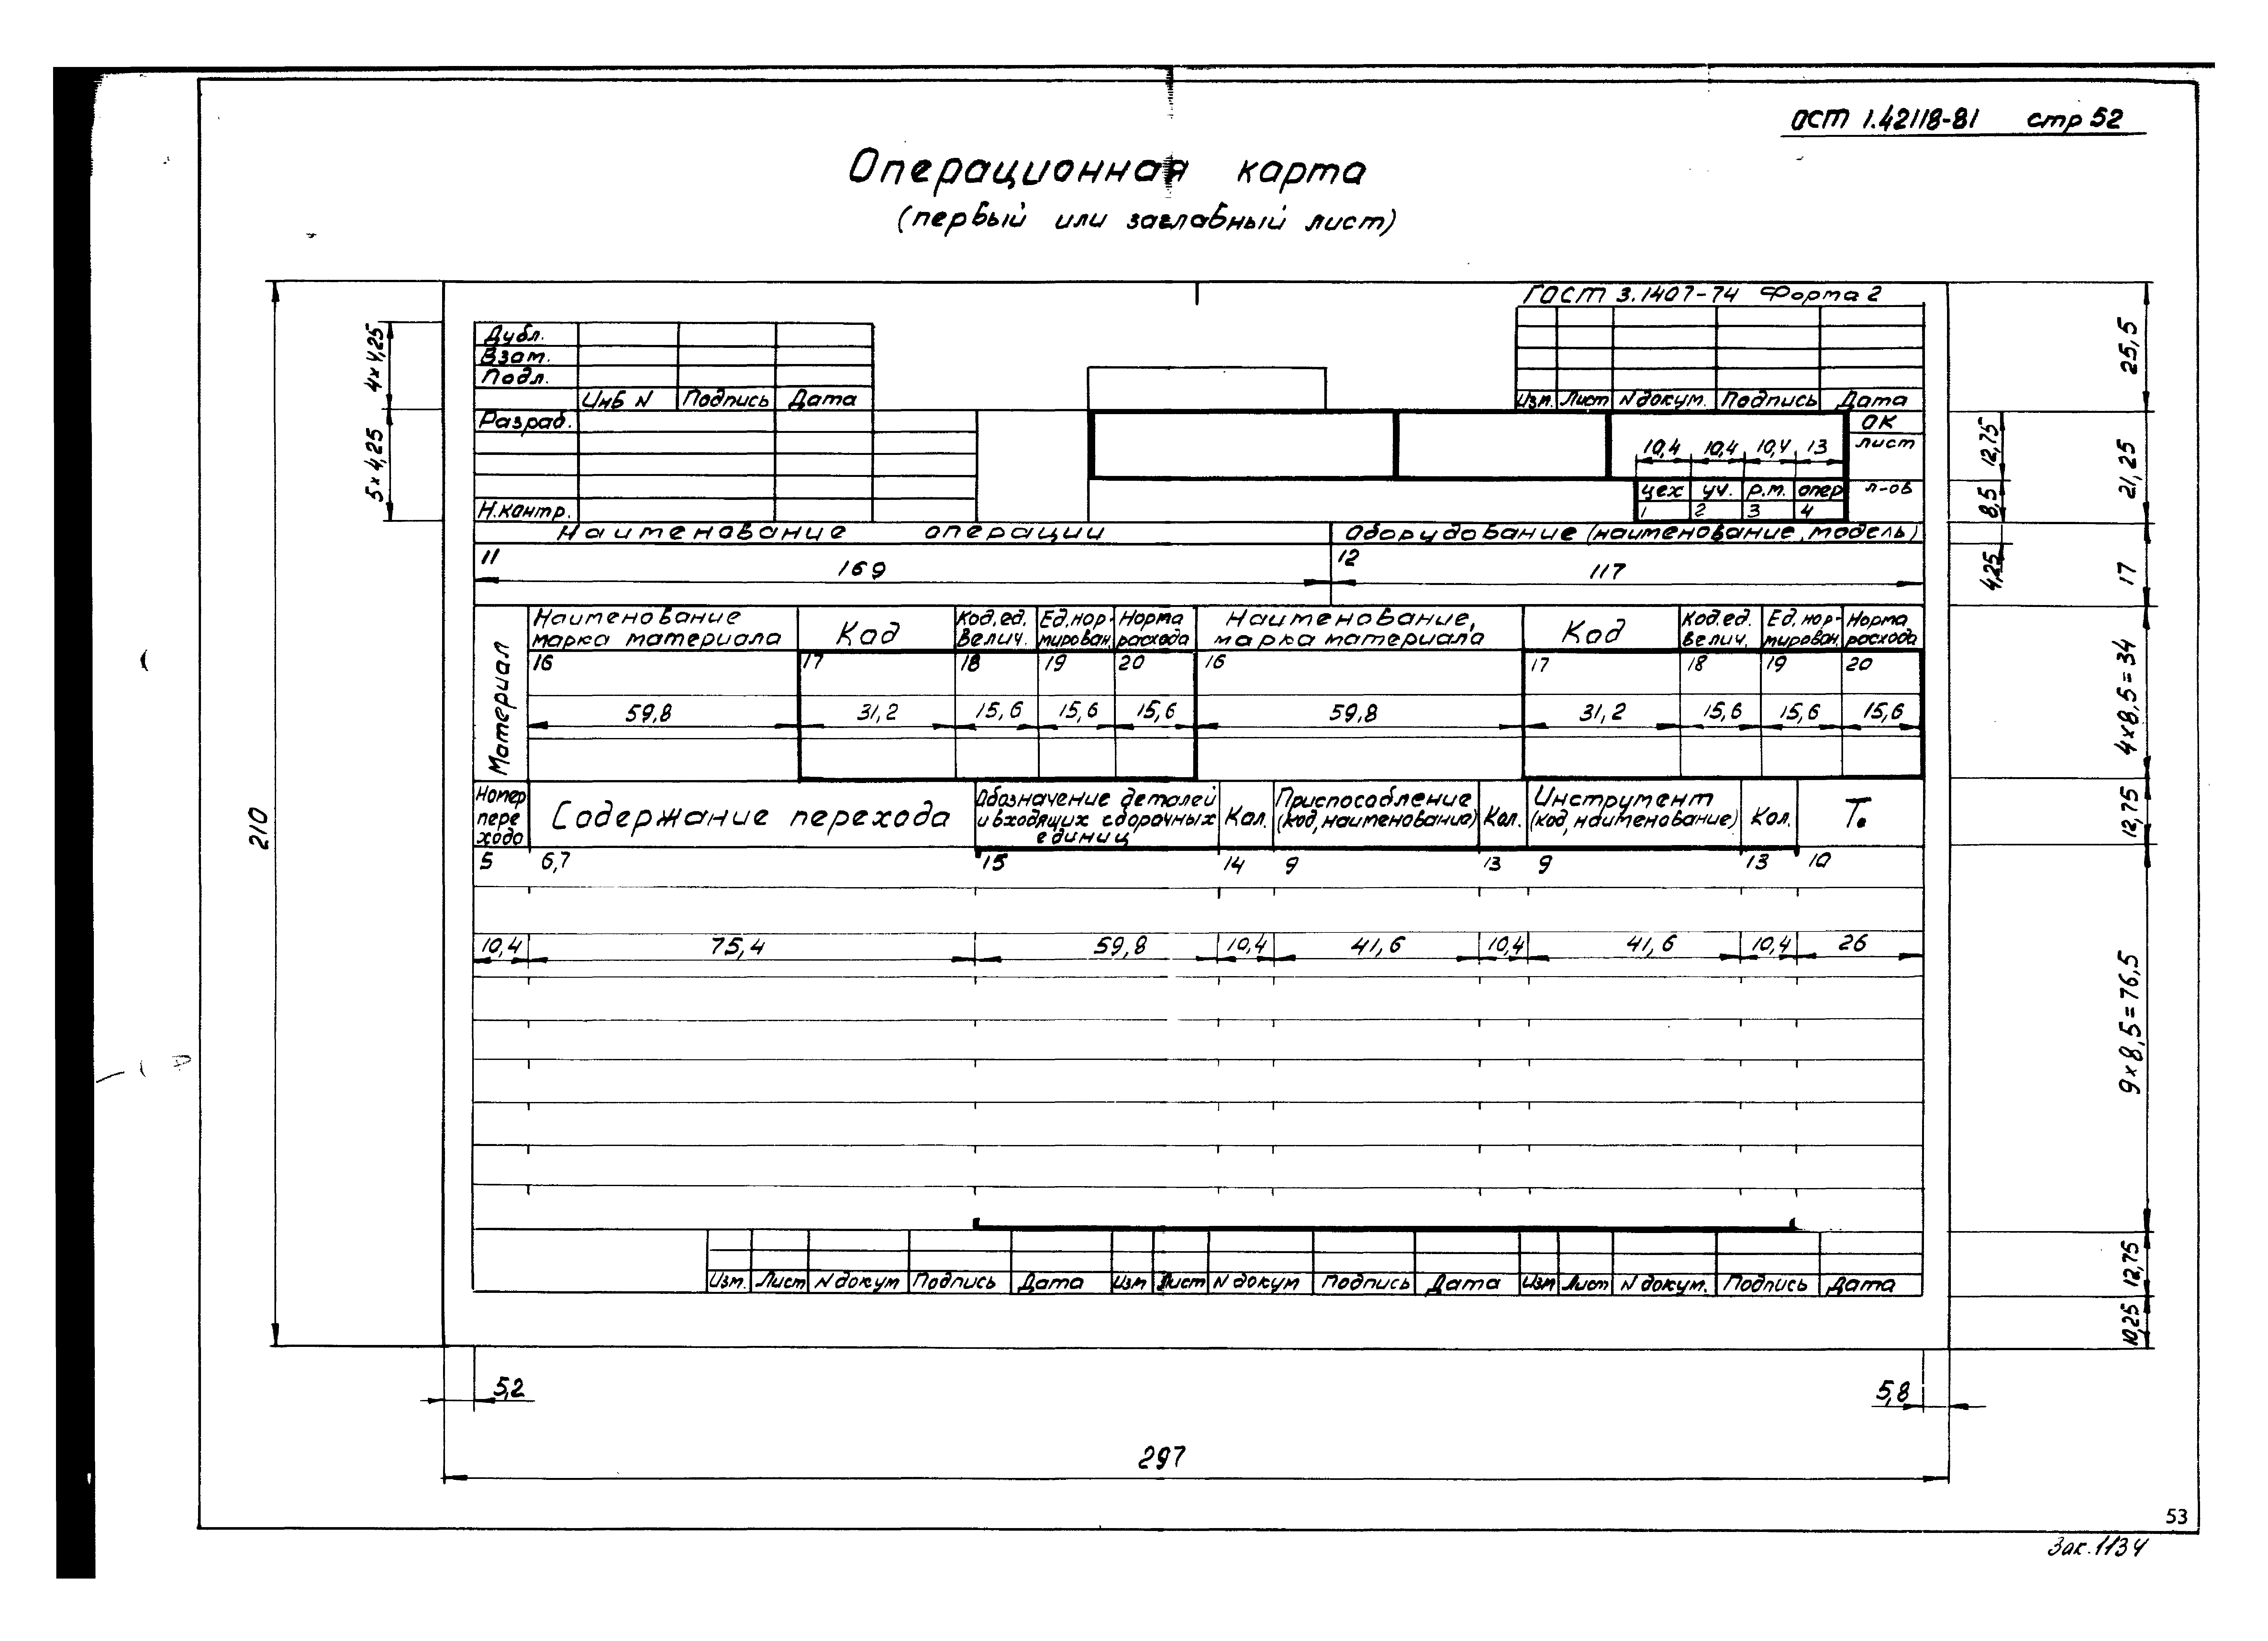 ОСТ 1.42118-81 стр 52
Операционная карта
(первый или заглавный лист)
ГОСТ 3.1407-74 Форма 2
Дубл.
Взам.
Подл.
Инв N Подпись Дата
Изм. Лист N докум. Подпись Дата
Разраб.
ОК
лист
10,4 10,4 10,4 13
цех уч. р.м. опер л-ов
Н.контр. 1 2 3 4
Наименование операции Оборудование (наименование, модель)
11 12
169 117
Материал
Наименование марка материала Код Код.ед. велич. Ед.нор-мирован. Норма расхода Наименование, марка материала Код Код.ед. велич. Ед.нор-мирован. Норма расхода
16 17 18 19 20 16 17 18 19 20
59,8 31,2 15,6 15,6 15,6 59,8 31,2 15,6 15,6 15,6
Номер пере хода Содержание перехода Обозначение деталей и входящих сборочных единиц Кол. Приспособление (код, наименование) Кол. Инструмент (код, наименование) Кол. Т.
5 6,7 15 14 9 13 9 13 10
10,4 75,4 59,8 10,4 41,6 10,4 41,6 10,4 26
Изм. Лист N докум Подпись Дата Изм Лист N докум Подпись Дата Изм Лист N докум. Подпись Дата
4×4,25
5×4,25
210
25,5
12,75
21,25
8,5
4,25
17
4×8,5=34
12,75
9×8,5=76,5
12,75
10,25
5,2 5,8
297
53
Зак.1134